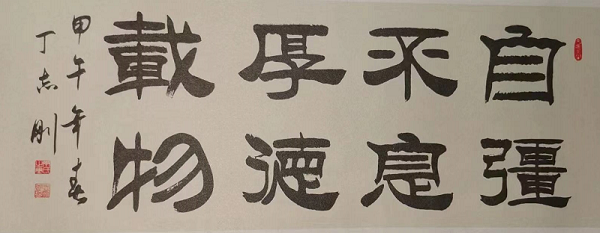 自彊
不息
厚德
載物
甲午年春
丁志刚